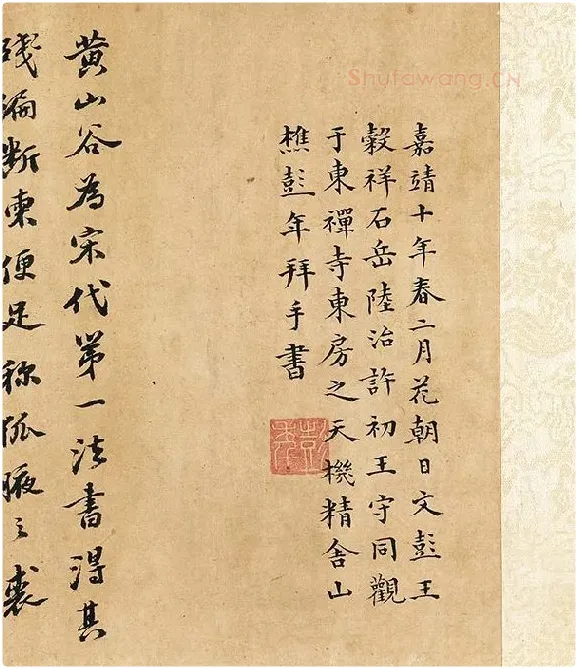 嘉靖十年春二月花朝日文彭王
穀祥石岳陸治許初王守同觀
于東禪寺東房之天機精舍山
樵彭年拜手書
彭年
黄山谷為宋代第一法書得其
殘编断柬便足称孤腋之裘
Shufawang.CN